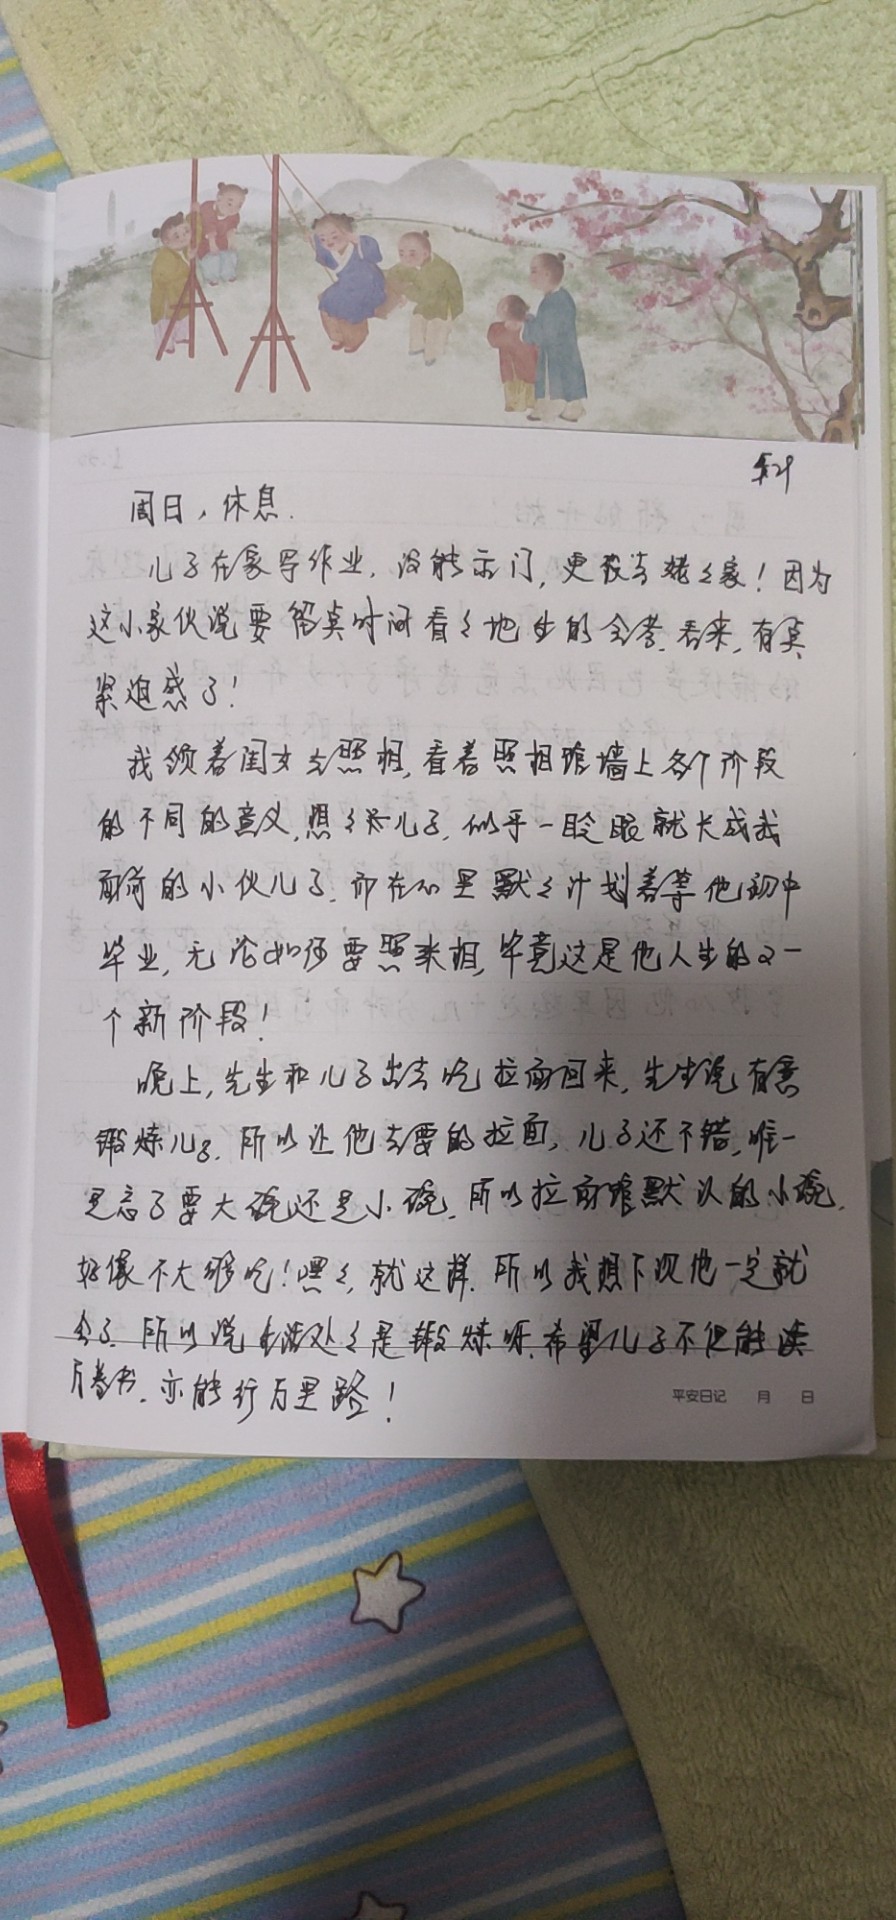 5.29
周日，休息.
儿子在家写作业，没能出门，更没去姥姥家！因为
这小家伙说要留点时间看看地生的会考.看来,有点
紧迫感了！
我领着闺女去照相，看着照相馆墙上各个阶段
的不同的意义，想想儿子，似乎一眨眼就长成我
面前的小伙儿了.而在心里默默计划着等他初中
毕业,无论如何要照张相,毕竟这是他人生的又一
个新阶段！
晚上,先生和儿子出去吃拉面回来，先生说有意
锻炼儿子.所以让他去要的拉面，儿子还不错,唯一
是忘了要大碗还是小碗,所以拉面馆默认的小碗,
好像不大够吃！嘿嘿,就这样.所以我想下次他一定就
会了.所以说生活处处是锻炼呀.希望儿子不但能读
万卷书.亦能行万里路！
平安日记 月 日